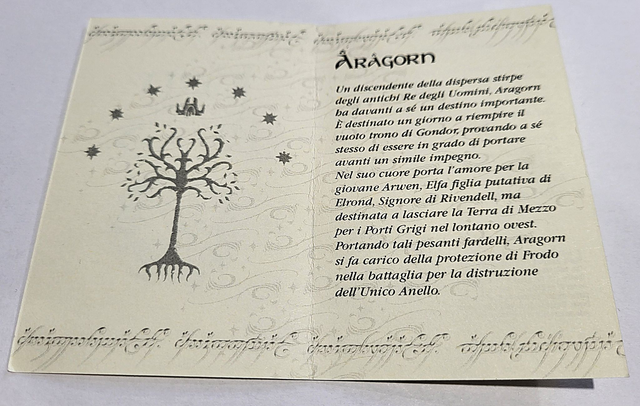 Arâgorn
Un discendente della dispersa stirpe
degli antichi Re degli Uomini, Aragorn
ha davanti a sé un destino importante.
È destinato un giorno a riempire il
vuoto trono di Gondor, provando a sé
stesso di essere in grado di portare
avanti un simile impegno.
Nel suo cuore porta l'amore per la
giovane Arwen, Elfa figlia putativa di
Elrond, Signore di Rivendell, ma
destinata a lasciare la Terra di Mezzo
per i Porti Grigi nel lontano ovest.
Portando tali pesanti fardelli, Aragorn
si fa carico della protezione di Frodo
nella battaglia per la distruzione
dell'Unico Anello.